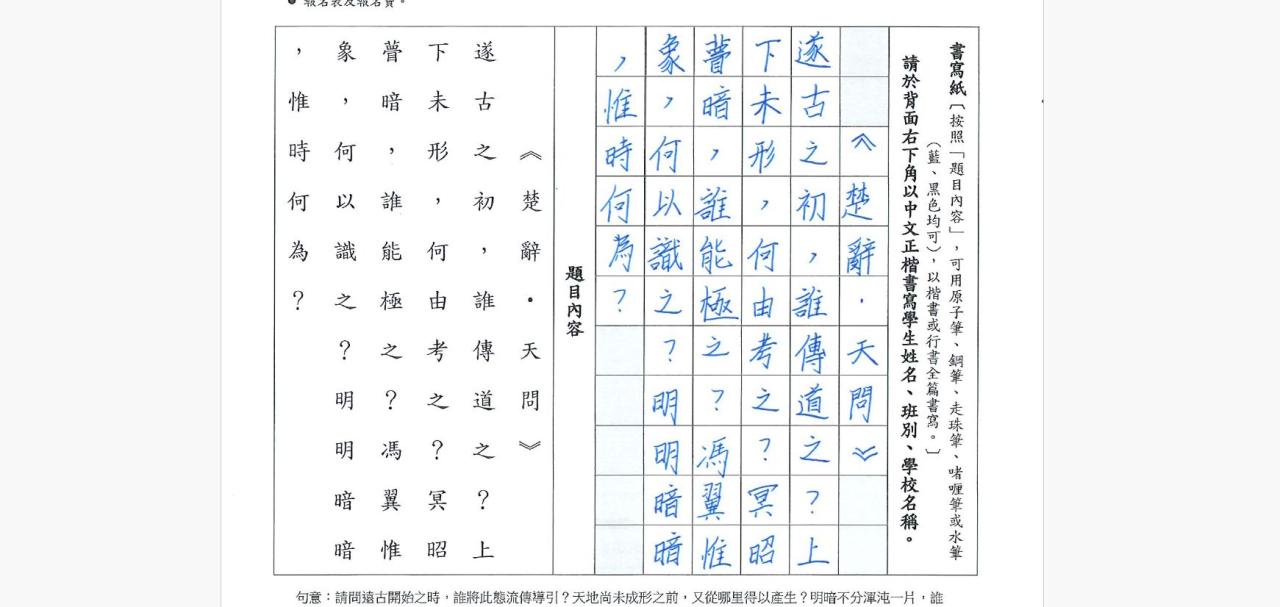 ● 報名表及報名費。
書寫紙〔按照「題目內容」，可用原子筆、鋼筆、走珠筆、啫喱筆或水筆
（藍、黑色均可），以楷書或行書全篇書寫。〕
請於背面右下角以中文正楷書寫學生姓名、班別、學校名稱。
《楚辭·天問》
遂古之初，誰傳道之？上
下未形，何由考之？冥昭
瞢暗，誰能極之？馮翼惟
象，何以識之？明明暗暗
，惟時何為？
題目內容
《楚辭·天問》
遂古之初，誰傳道之？上
下未形，何由考之？冥昭
瞢暗，誰能極之？馮翼惟
象，何以識之？明明暗暗
，惟時何為？
句意：請問遠古開始之時，誰將此態流傳導引？天地尚未成形之前，又從哪里得以產生？明暗不分渾沌一片，誰